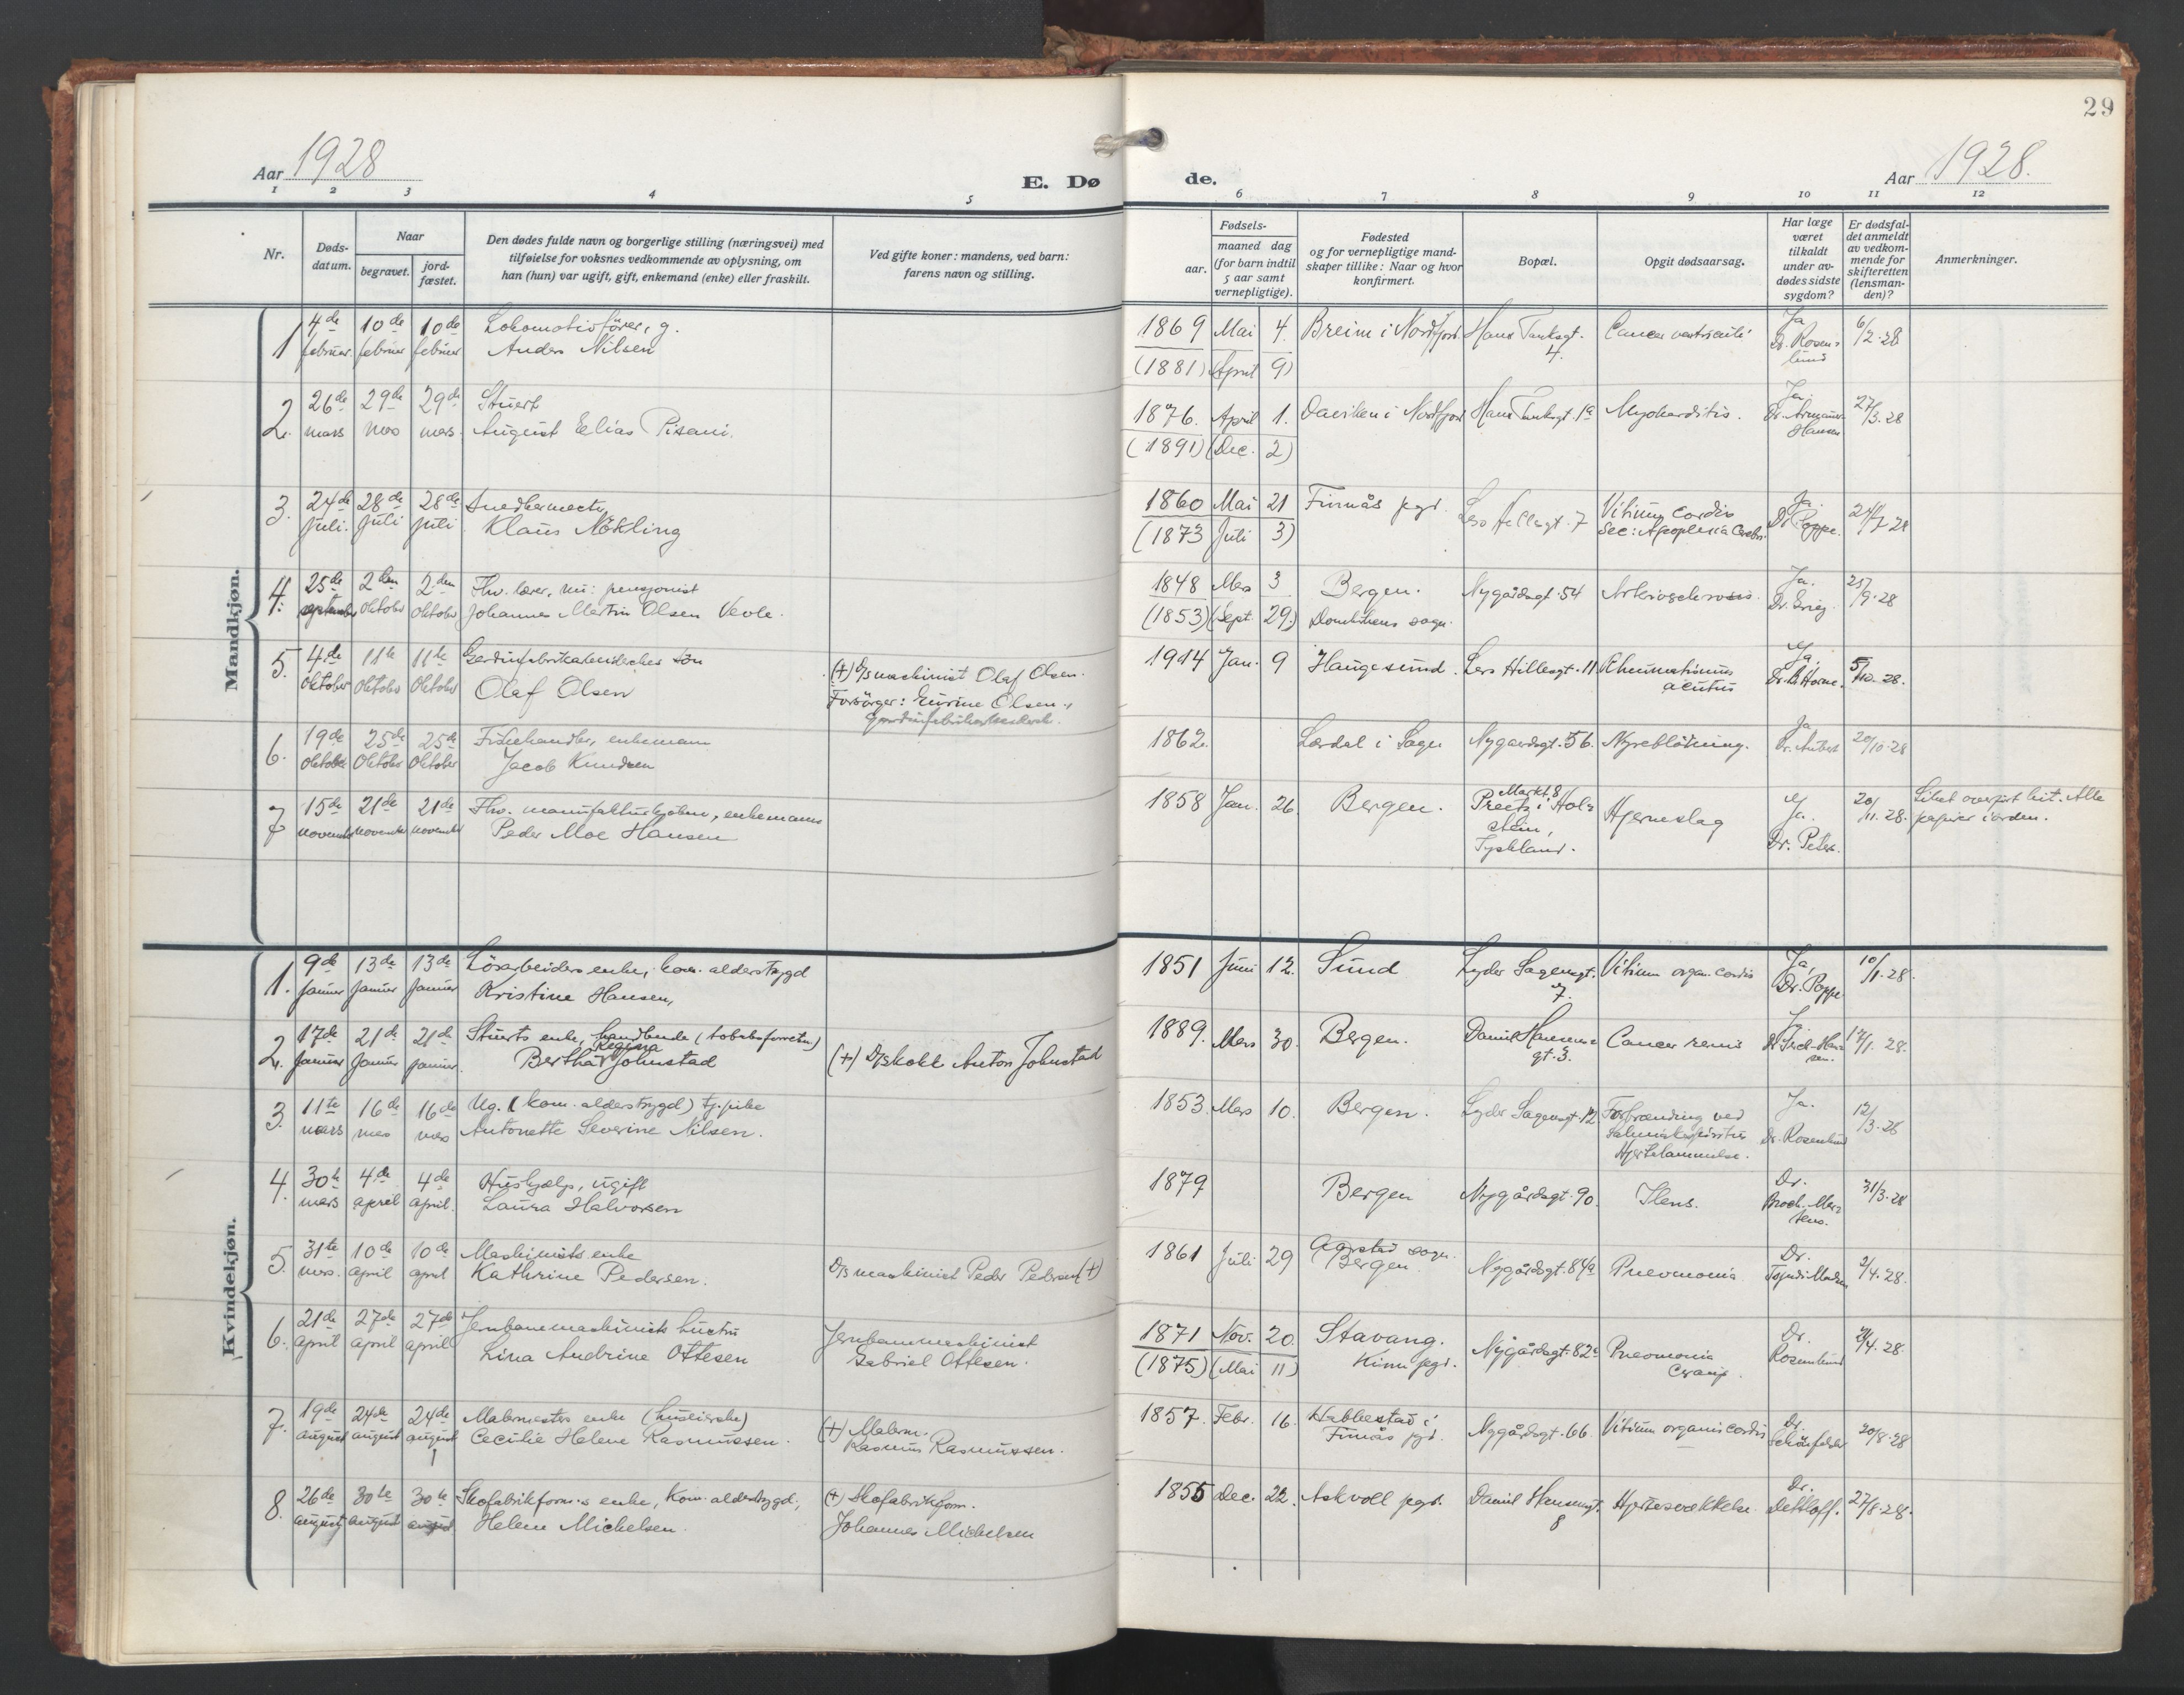 29
Aar 1928
E. Dø
de.
Aar 1928.
1 2 3 4 5 6 7 8 9 10 11 12
Nr.
Døds-
datum.
Naar
begravet.
jord-
fæstet.
Den dødes fulde navn og borgerlige stilling (næringsvei) med
tilføielse for voksnes vedkommende av oplysning, om
han (hun) var ugift, gift, enkemand (enke) eller fraskilt.
Ved gifte koner: mandens, ved barn:
farens navn og stilling.
Fødsels-
aar.
maaned dag
(for barn indtil
5 aar samt
vernepligtige).
Fødested
og for vernepligtige mand-
skaper tillike: Naar og hvor
konfirmert.
Bopæl.
Opgit dødsaarsag.
Har læge
været
tilkaldt
under av-
dødes sidste
sygdom?
Er dødsfal-
det anmeldt
av vedkom-
mende for
skifteretten
(lensman-
den)?
Anmerkninger.
Mandkjøn.
1 4de februar. 10de februar 10de februar
Lokomotivfører, g.
Anders Nilsen
1869 Mai 4. Breim i Nordfjord. Hans Tanksgt. 4.
Cancer ventriculi
Ja Dr. Rosenlund 6/2.28
(1881) (April 9)
2. 26de mars 29de mars 29de mars.
Stuert
August Elias Pisani.
1876. April 1. Daviken i Nordfjord Hans Tanksgt. 1a Myokarditis.
Ja. Dr. Armauer Hansen 27/3.28
(1891) (Dec. 2)
3. 24de Juli. 28de Juli 28de juli
Snedkermester
Klaus Nökling
1860 Mai 21 Finnås pgd. Lars Hillesgt. 7 Vitium Cordis
Sec: Apoplexia Cerebri.
Ja. Dr. Poppe. 24/7.28
(1873 Juli 3)
4. 25de september 2den Oktober 2den Oktober
Fhv. lærer, nu: pensjonist
Johannes Martin Olsen Vevle.
1848 Mars 3 Bergen. Nygårdsgt. 54 Arteriosclerosis.
Ja. Dr. Grieg. 25/9.28
(1853) (Sept. 29.) Domkirkens sogn.
5. 4de Oktober 11te Oktober 11te Oktober
Olaf Olsen
(+) D/s maskinist Olaf Olsen.
Forsörger: Gurine Olsen.,
1914 Jan. 9 Haugesund. Lars Hillesgt. 11. Rheumatismus
acutus
Ja. 5/10.28.
6. 19de Oktober 25de Oktober 25de Oktober
Fiskehandler, enkemann
Jacob Knudsen
1862. Lærdal i Sogn Nygaardsgt. 56. Nyreblödning.
Ja Dr. Aubert 20/10.28
7 15de november 21de november 21de november
Fhv. manufakturkjøbm., enkemann
Peder Moe Hansen
1858 Jan. 26. Bergen.
Markt 8
Preetz i Hol-
stein,
Tyskland.
Hjerneslag
Ja. Dr. Peters. 20/11.28.
Liket overført hit. Alle
papirer i orden.
Kvindekjøn.
1. 9de Januar 13de Januar 13de Januar
Lösarbeiders enke, kom. alderstrygd
Kristine Hansen,
1851 Juni 12. Sund Lyder Sagensgt. 7. Vitium organ. cordis
Ja, Dr. Poppe 10/1.28.
2. 17de Januar 21de Januar 21de januar.
Stuerts enke, handlende (tobaksforretn.)
Regina
Bertha Johnstad
(+) D/s kokk Anton Johnstad
1889. Mars 30. Bergen. Daniel Hansens-
gt. 3.
Cancer renis
17/1.28.
3. 11te mars 16de mars 16de mars
Ug. (kom. alderstrygd) tj.pike
Antonette Severine Nilsen.
1853. Mars 10. Bergen. Lyder Sagensgt. 12 Forbrænding ved
Hjertelammelse.
Ja. Dr. Rosenlund 12/3.28
4. 30te mars 4de april 4de april.
Hushjælp, ugift
Laura Halvorsen
1879 Bergen Nygårdsgt. 90. Ilens.
Dr. 31/3.28
5. 31te mars. 10de april 10de april
Maskinists enke
Kathrine Pedersen.
D/s maskinist Peder Pedersen (+)
1861 Juli 29 Aarstad sogn.
Bergen.
Nygårdsgt. 84a Pneomonia
Dr. 2/4.28.
6. 21de April 27de april 27de april
Jernbanemaskinists hustru
Lina Andrine Ottesen
Jernbanemaskinist
Gabriel Ottesen.
1871 Nov. 20. Stavang.
Nygårdsgt. 82a Pneomonia
Croup.
Dr. Rosenlund 21/4.28.
(1875) (Mai 11) Kinn pgd.
7. 19de august 24de august 24de august
Malermesters enke (huseierske)
Cecilie Helene Rasmussen.
(+) Malerm.
Rasmus Rasmussen.
1857. Febr. 16. Habbestad i
Finnås pgd.
Nygårdsgt. 66. Vitium organis cordis
Dr. 20/8.28
8. 26de august 30te august 30te august
Skofabrikform.s enke, Kom. alderstrygd,
Helene Michelsen.
(+) Skofabrikform.
Johannes Michelsen
1855 Dec. 22. Askvoll pgd. Daniel Hansensgt. 8 Hjertesvækkelse.
Dr. Dethloff. 27/8.28.